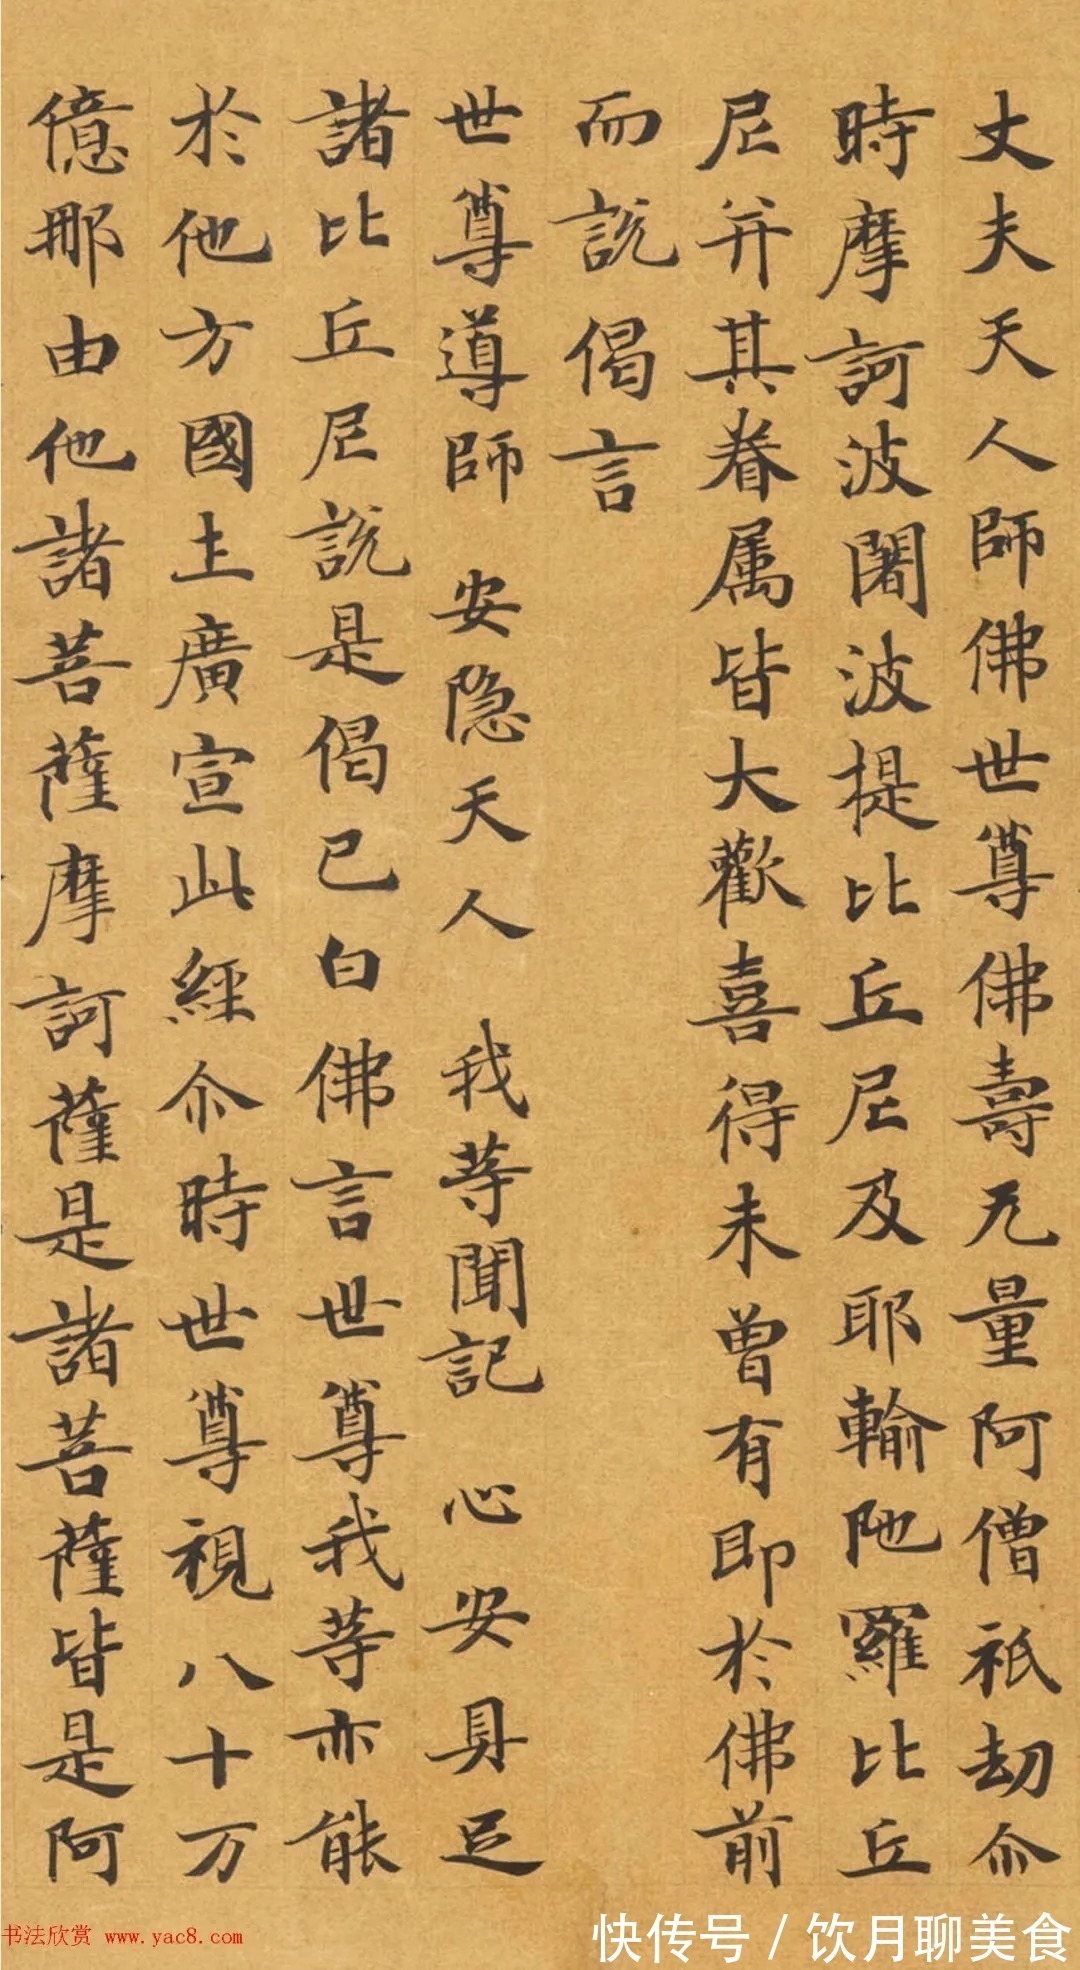 丈夫天人師佛世尊佛壽无量阿僧祇劫尒
時摩訶波闍波提比丘尼及耶輸陁羅比丘
尼并其眷属皆大歡喜得未曾有即於佛前
而說偈言
世尊導師 安隐天人 我等聞記 心安具足
諸比丘尼說是偈已白佛言世尊我等亦能
於他方國土廣宣此經尒時世尊視八十万
億那由他諸菩薩摩訶薩是諸菩薩皆是阿
书法欣赏 www.yac8.com
快传号 / 饮月聊美食